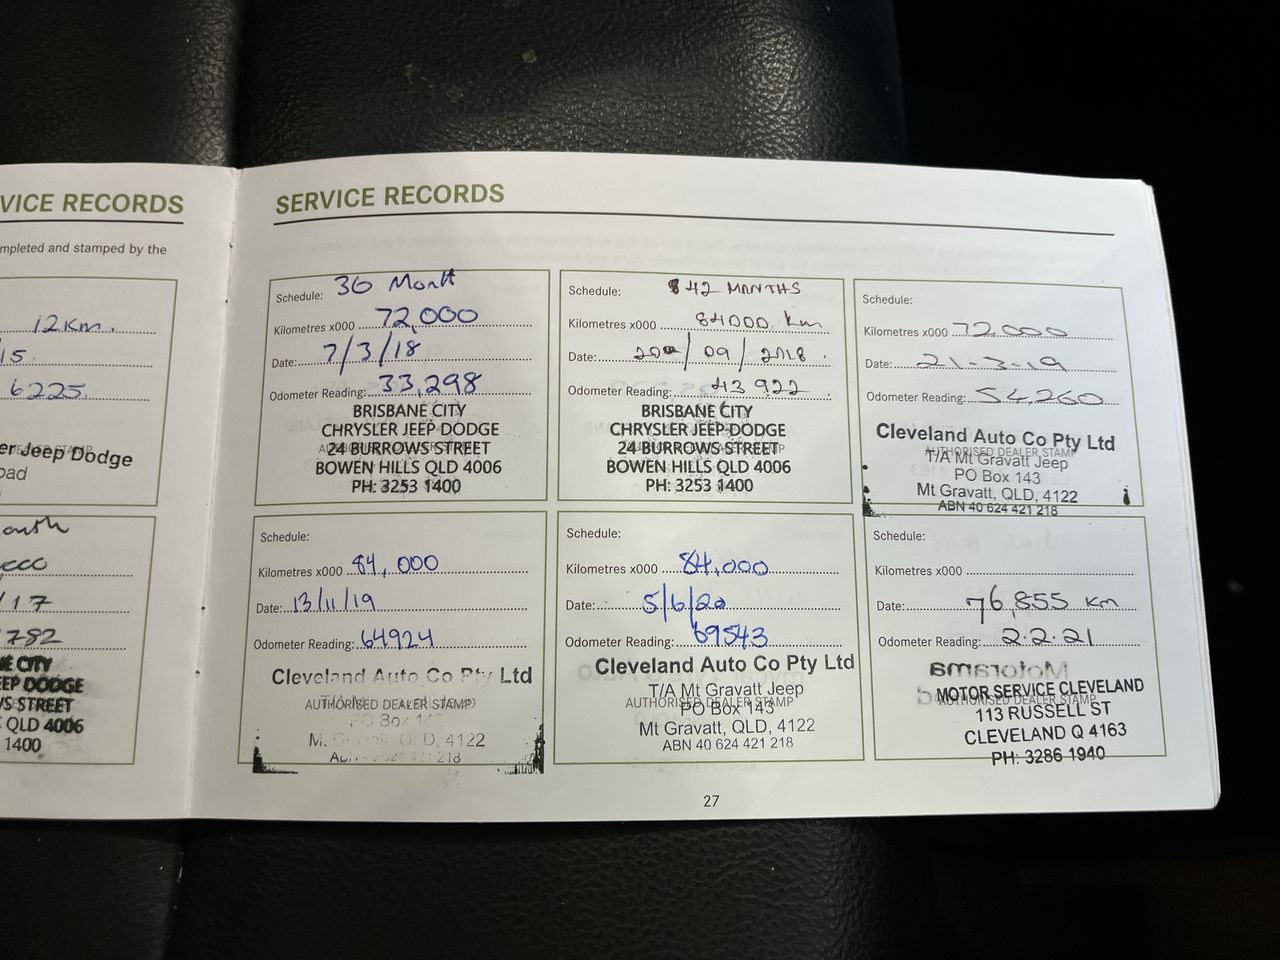 VICE RECORDS
mpleted and stamped by the
12km.
15.
6225.
er Jeep Dodge
DEALER STAMP
oad
onth
000
/17
782
E CITY
EEP DODGE
S STREET
QLD 4006
1400
SERVICE RECORDS
Schedule: 36 Month
Kilometres x000 72,000
Date: 7/3/18
Odometer Reading: 33,298
BRISBANE CITY
CHRYSLER JEEP DODGE
AUTHORISED DEALER STAMP
24 BURROWS STREET
BOWEN HILLS QLD 4006
PH: 3253 1400
Schedule: 42 MANTHS
Kilometres x000 84000 km
Date: 20/09/2018.
Odometer Reading: 43922
BRISBANE CITY
CHRYSLER JEEP DODGE
AUTHORISED DEALER STAMP
24 BURROWS STREET
BOWEN HILLS QLD 4006
PH: 3253 1400
Schedule:
Kilometres x000 72000
Date: 21-3-19
Odometer Reading: 54,260
Cleveland Auto Co Pty Ltd
AUTHORISED DEALER STAMP
T/A Mt Gravatt Jeep
PO Box 143
Mt Gravatt, QLD, 4122
ABN 40 624 421 218
Schedule:
Kilometres x000 84,000
Date: 13/11/19
Odometer Reading: 64924
Cleveland Auto Co Pty Ltd
AUTHORISED DEALER STAMP
PO Box
4122
218
Schedule:
Kilometres x000 84,000
Date: 5/6/20
Odometer Reading: 69543
Cleveland Auto Co Pty Ltd
T/A Mt Gravatt Jeep
AUTHORISED DEALER STAMP
PO Box 143
Mt Gravatt, QLD, 4122
ABN 40 624 421 218
Schedule:
Kilometres x000
Date: 76,855 km
Odometer Reading: 2.2.21
Motorama
MOTOR SERVICE CLEVELAND
AUTHORISED DEALER STAMP
113 RUSSELL ST
CLEVELAND Q 4163
PH: 3286 1940
27